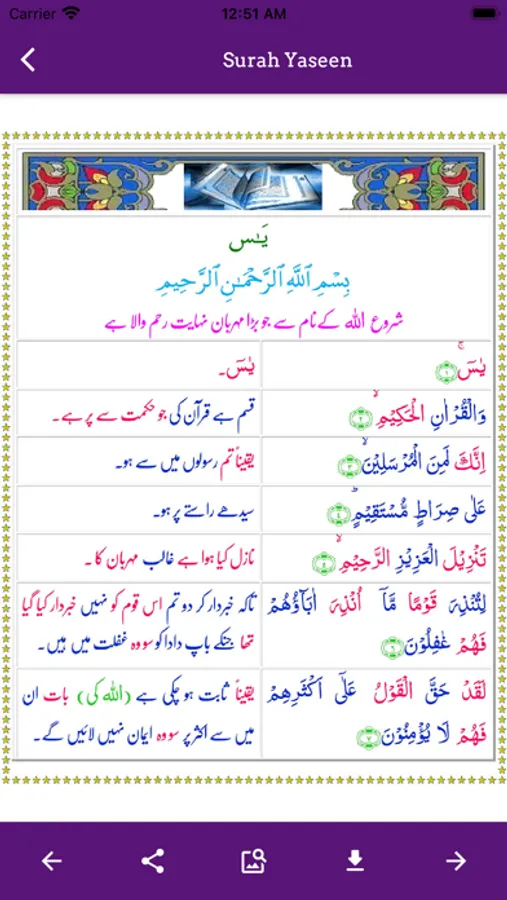 Carrier 12:51 AM
Surah Yaseen
يَـٰس
بِسْمِ ٱللَّهِ ٱلرَّحْمَـٰنِ ٱلرَّحِيمِ
شروع اللہ کے نام سے جو بڑا مہربان نہایت رحم والا ہے
يٰسٓ ۚ‏ ﴿۱﴾
یٰسٓ۔
وَالْقُرْاٰنِ الْحَكِيْمِ ۙ‏ ﴿۲﴾
قسم ہے قرآن کی جو حکمت سے پر ہے۔
اِنَّكَ لَمِنَ الْمُرْسَلِيْنَ ۙ‏ ﴿۳﴾
یقیناً تم رسولوں میں سے ہو۔
عَلٰى صِرَاطٍ مُّسْتَقِيْمٍؕ‏ ﴿۴﴾
سیدھے راستے پر ہو۔
تَنْزِيْلَ الْعَزِيْزِ الرَّحِيْمِ ۙ‏ ﴿۵﴾
نازل کیا ہوا ہے غالب مہربان کا ۔
لِتُنْذِرَ قَوْمًا مَّاۤ اُنْذِرَ اٰبَآؤُهُمْ
فَهُمْ غٰفِلُوْنَ‏ ﴿۶﴾
تاکہ خبردار کر دو تم اس قوم کو نہیں خبردار کیا گیا
تھا جنکے باپ دادا کو سو وہ غفلت میں ہیں۔
لَقَدْ حَقَّ الْقَوْلُ عَلٰٓى اَكْثَرِهِمْ
فَهُمْ لَا يُؤْمِنُوْنَ‏ ﴿۷﴾
یقیناً ثابت ہو چکی ہے (اللہ کی) بات ان
میں سے اکثر پر سو وہ ایمان نہیں لائیں گے۔